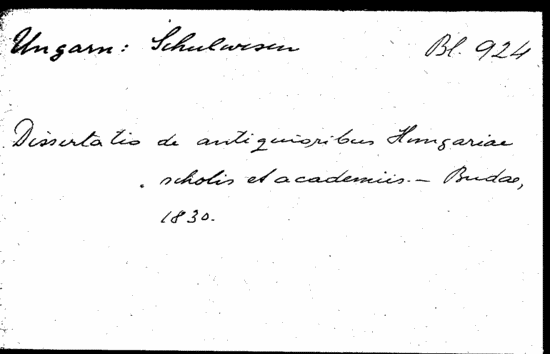 Ungarn: Schulwesen Bl. 924
Dissertatio de antiquioribus Hungariae
scholis et academiis. – Budae,
1830.